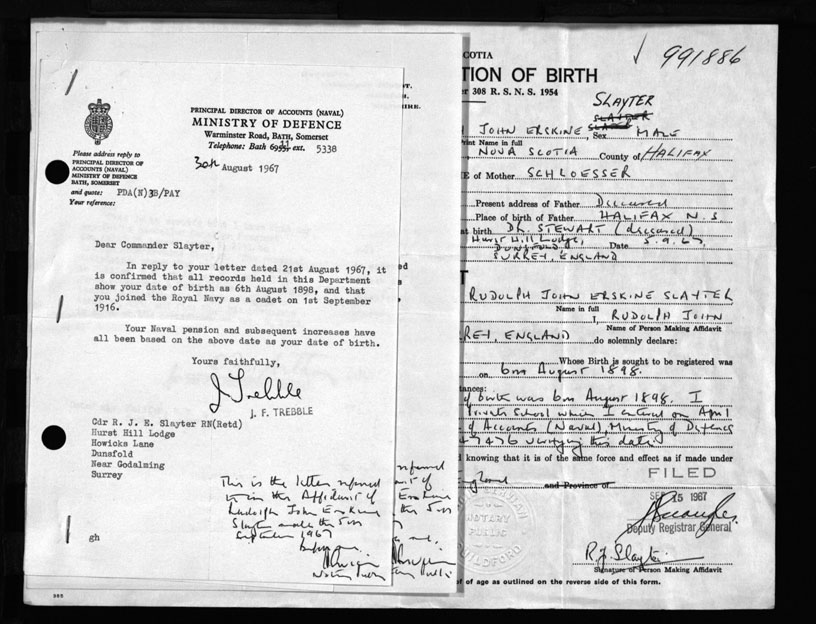 PRINCIPAL DIRECTOR OF ACCOUNTS (NAVAL)
MINISTRY OF DEFENCE
Warminster Road, BATH, Somerset
Telephone: Bath 6955 11 ext. 5338
30th August 1967
Please address reply to
PRINCIPAL DIRECTOR OF
ACCOUNTS (NAVAL)
MINISTRY OF DEFENCE
BATH, SOMERSET
and quote: PDA(N)3B/PAY
Your reference:
Dear Commander Slayter,
In reply to your letter dated 21st August 1967, it
is confirmed that all records held in this Department
show your date of birth as 6th August 1898, and that
you joined the Royal Navy as a cadet on 1st September
1916.
Your Naval pension and subsequent increases have
all been based on the above date as your date of birth.
Yours faithfully,
J Trebble
J. F. TREBBLE
Cdr R. J. E. Slayter RN(Retd)
Hurst Hill Lodge
Howicks Lane
Dunsfold
Near Godalming
Surrey
This is the letter referred
to in the Affidavit of
Rudolph John Erskine
Slayter made the 5th
September 1967
Before me.
Notary Public
gh
COTIA
991886
TION OF BIRTH
308 R. S. N. S. 1954
SLAYTER
JOHN ERSKINE SLAYTER, Sex MALE
Print Name in full
NOVA SCOTIA County of HALIFAX
of Mother SCHLOESSER
Present address of Father Deceased
Place of birth of Father HALIFAX N.S
at birth DR. STEWART (deceased)
Hurst Hill Lodge, Date 5.9.67,
DUNSFOLD,
SURREY, ENGLAND
RUDOLPH JOHN ERSKINE SLAYTER
Name in full
I, RUDOLPH JOHN
Name of Person Making Affidavit
REY, ENGLAND do solemnly declare:
Whose Birth is sought to be registered was
on born August 1898.
tances:
of birth was born August 1898. I
Private School which I entered on April
of Accounts (Naval), Ministry of Defence
verifying this date.
knowing that it is of the same force and effect as if made under
England and Province of
FILED
SEP 15 1967
Deputy Registrar General
NOTARY
PUBLIC
GUILDFORD
R.J. Slayter
Signature of Person Making Affidavit
of age as outlined on the reverse side of this form.